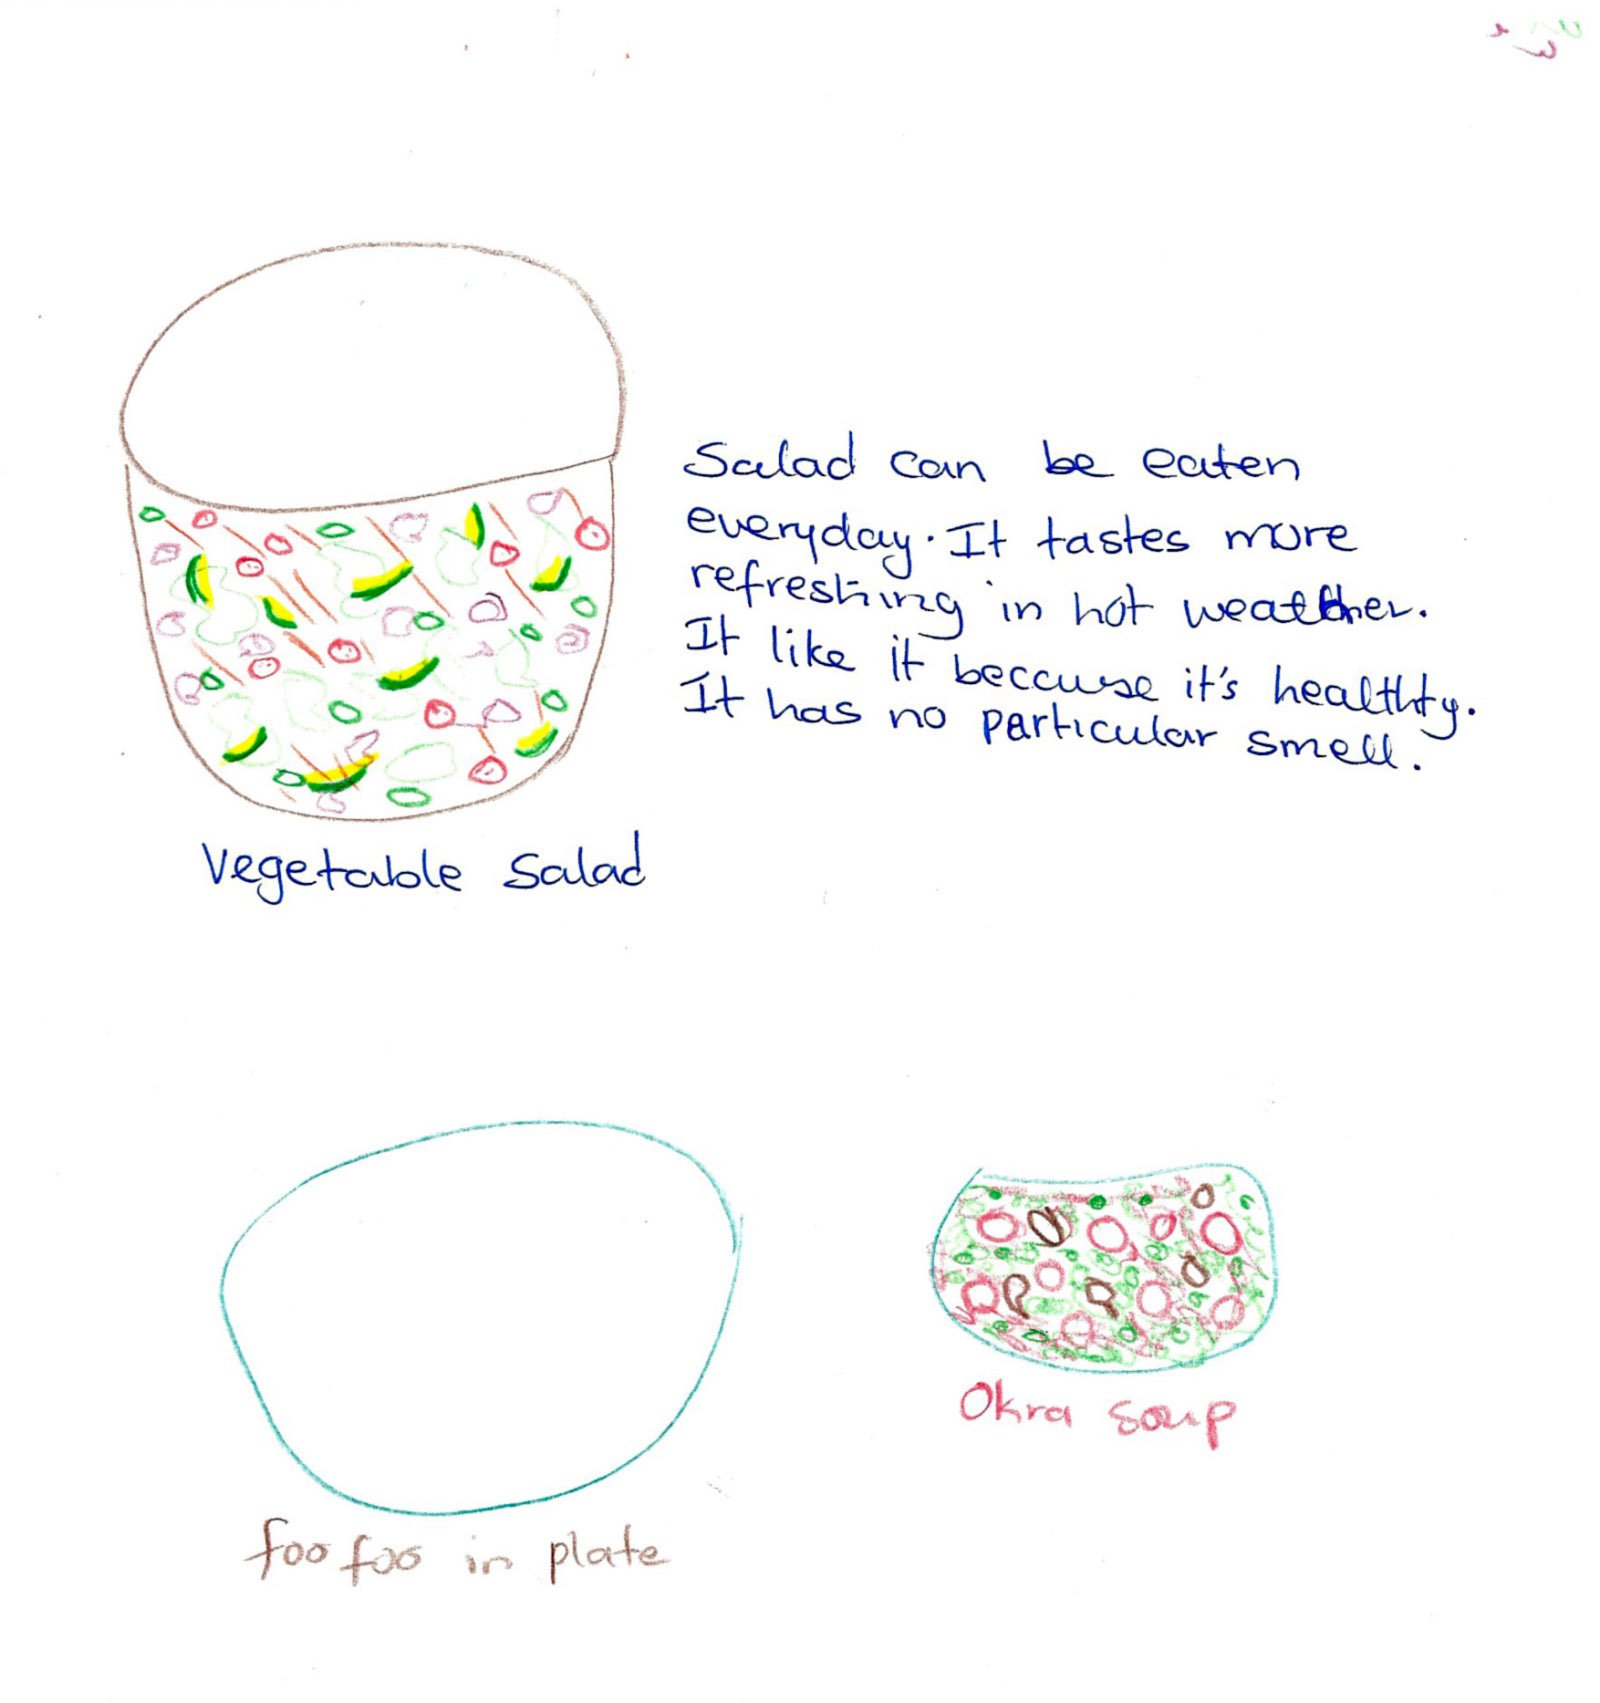 Salad can be eaten
everyday. It tastes more
refreshing in hot weather.
It like it because it's healthty.
It has no particular smell.
Vegetable Salad
Okra soup
foo foo in plate